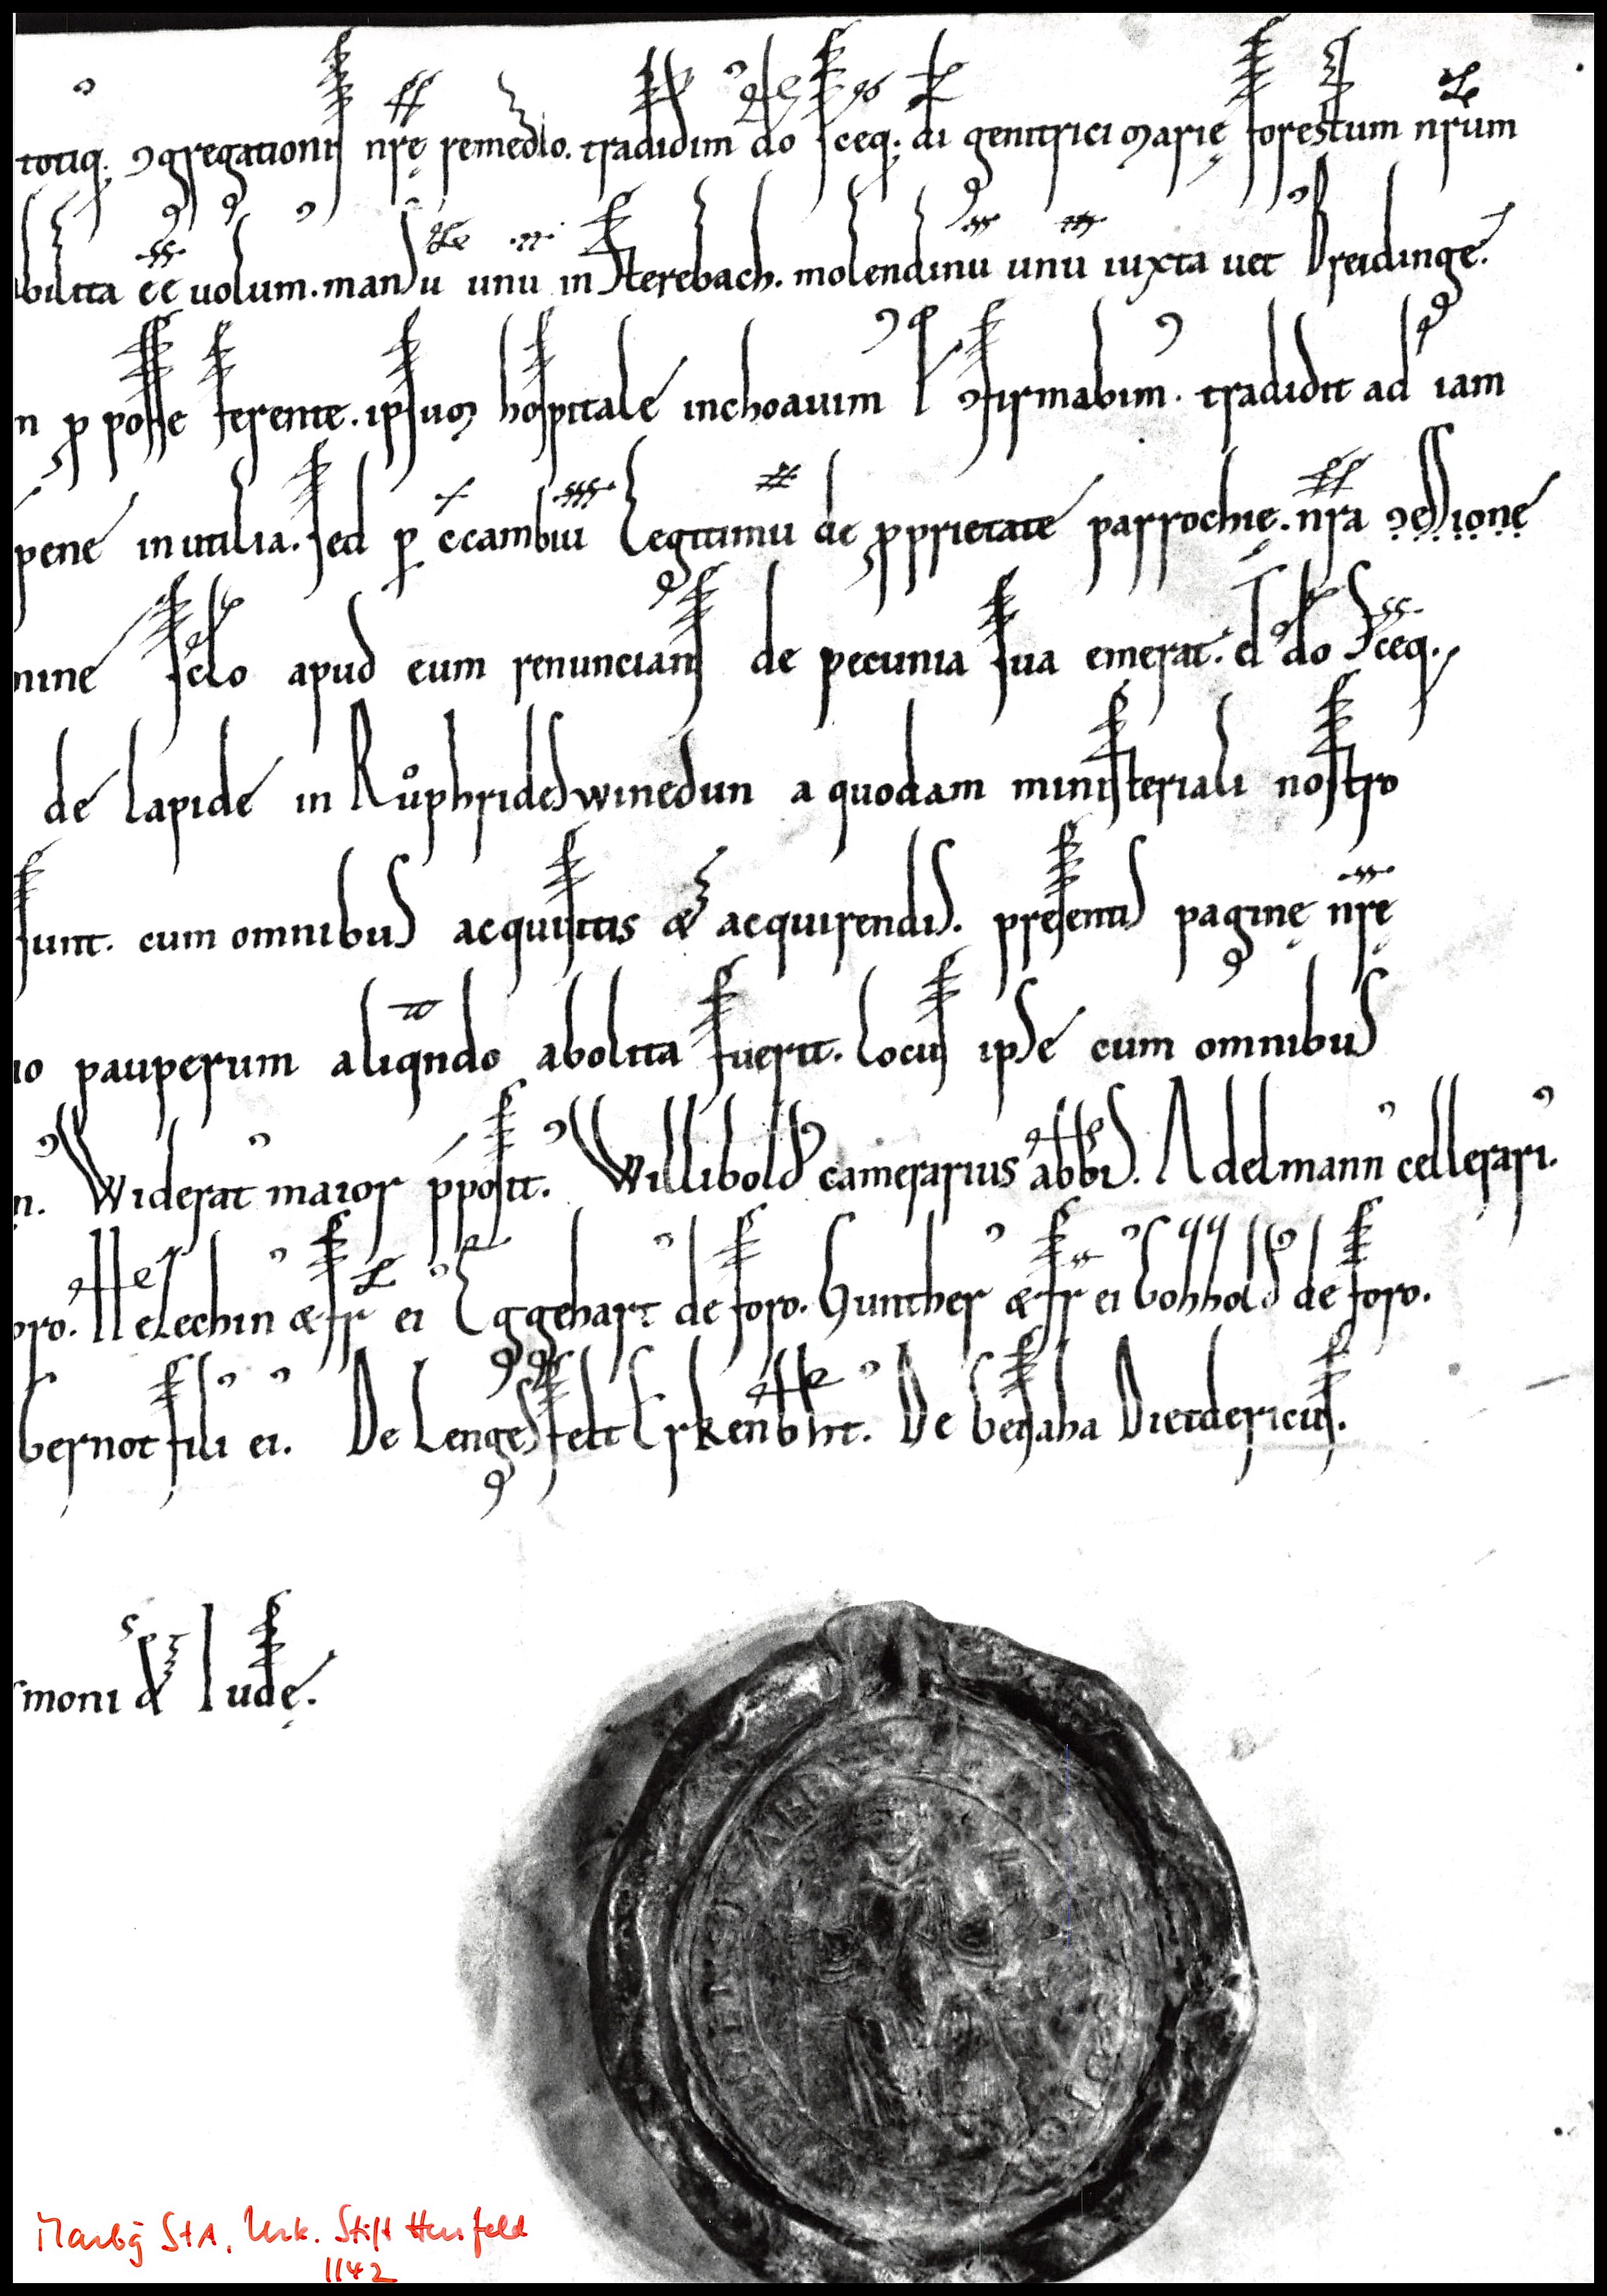 totiq; ꝯgregationis nrę remedio. tradidim do sceq; di genitrici Marię forestum nrum
bilita ee uolum. mansu unu in Sterebach. molendinu unu iuxta uet Breidinge.
n ꝓ posse ferente. ipsuq hospitale inchoauim l ꝯfirmabim. tradidit ad iam
pene inutilia. sed ꝑ ecambiu legitimu de ꝓprietate parrochię. nra ꝯcessione
mine scło apud eum renuncians de pecunia sua emerat. et do sceq;
de Lapide in Růphrideswinedun a quodam ministeriali nostro
sunt. cum omnibus acquisitis & acquirendis. presentis paginę nrę
io pauperum aliqndo abolita fuerit. locus ipse cum omnibus
n. Widerat maior ꝓposit. Willibold camerarius abbis. Adelmann cellerari.
oro. Helechin & fr ei Eggehart de foro. Gunther & fr ei Gohhold de foro.
Gernot fili ei. De Lengesfelt Erkenbht. De Gesaha Dietdericus.
moni & Iudę.
Marbg StA, Urk. Stift Hersfeld
1142